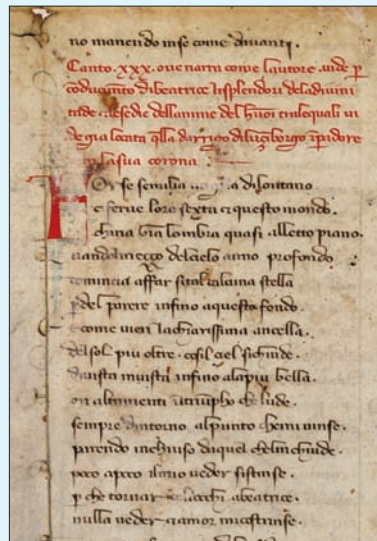 no manendo inse come davanti.
Canto. xxx. oue narra come lautore. uide p
cōducimēto di beatrice lisplendori dela diuini
tade. le sedie dellanime del huoi tralequali ui
de gia locata qlla darrigo di luziborgo īpadore
la sua corona
For se semilia miglia di lontano
e ferue lora sexta et questo mondo.
china gia lombra quasi alletto piano.
uando mezzo del cielo anno profondo
comincia affar si tal calaina stella
pde l parere infino aquesto fondo.
come uien lachiarissima ancella.
del sol piu oltre. cosil ciel sichiude.
di uista inuista infino alapiu bella.
on altrimenti iltriumpho che lude.
sempre dintorno alpunto chemi uinse.
parendo inchiuso da quel chelinchiude.
poco apoco ilmio ueder sistinse.
p che tornar locchi abeatrice.
nulla ueder et amor micostrinse.